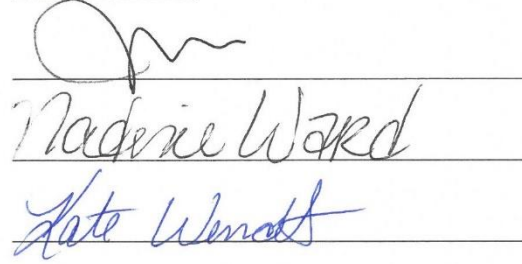 Nadine Ward
Kate Wendt